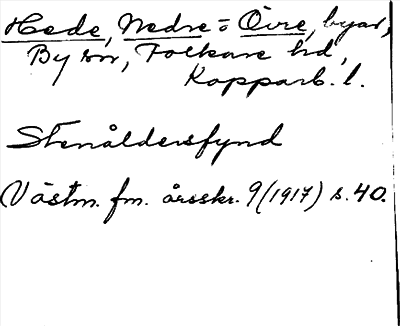 Hede, Nedre = Övre, byar,
By sn, Folkare hd,
Kopparb. l.
Stenåldersfynd
Västm. fm. årsskr. 9 (1917) s. 40.